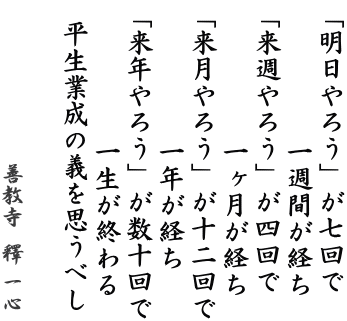 「明日やろう」が七回で
一週間が経ち
「来週やろう」が四回で
一ヶ月が経ち
「来月やろう」が十二回で
一年が経ち
「来年やろう」が数十回で
一生が終わる
平生業成の義を思うべし
善教寺 釋一心